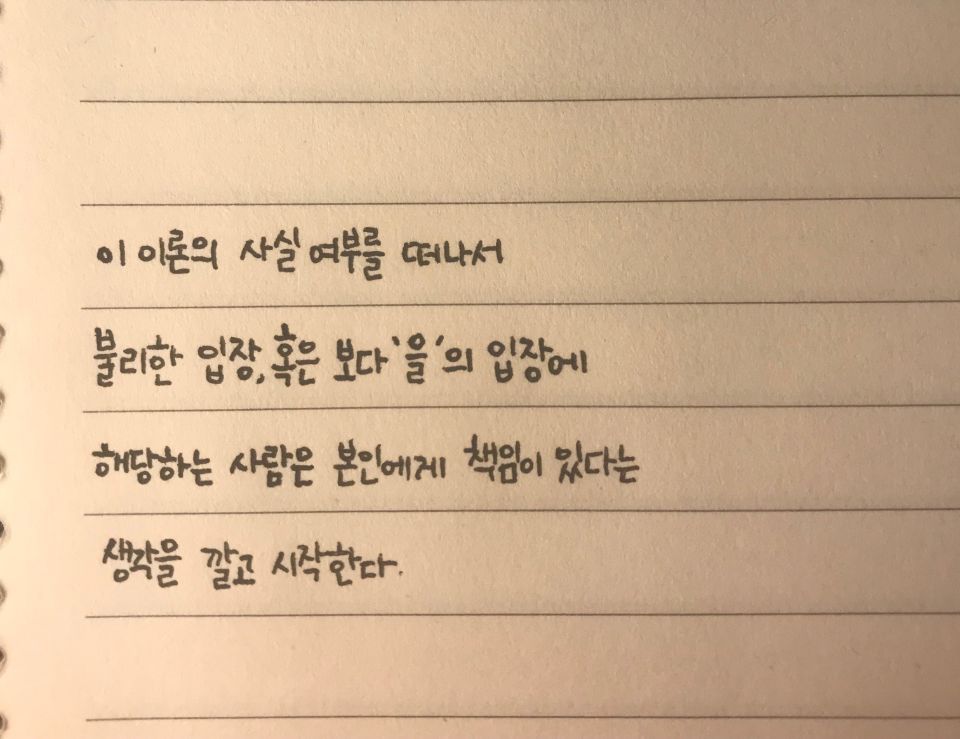 이 이론의 사실 여부를 떠나서
불리한 입장, 혹은 보다 '을'의 입장에
해당하는 사람은 본인에게 책임이 있다는
생각을 깔고 시작한다.